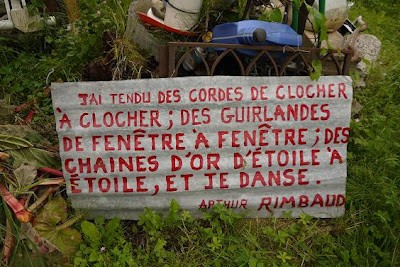 J'AI TENDU DES CORDES DE CLOCHER
À CLOCHER ; DES GUIRLANDES
DE FENÊTRE À FENÊTRE ; DES
CHAINES D'OR D'ÉTOILE À
ETOILE, ET JE DANSE.
ARTHUR RIMBAUD